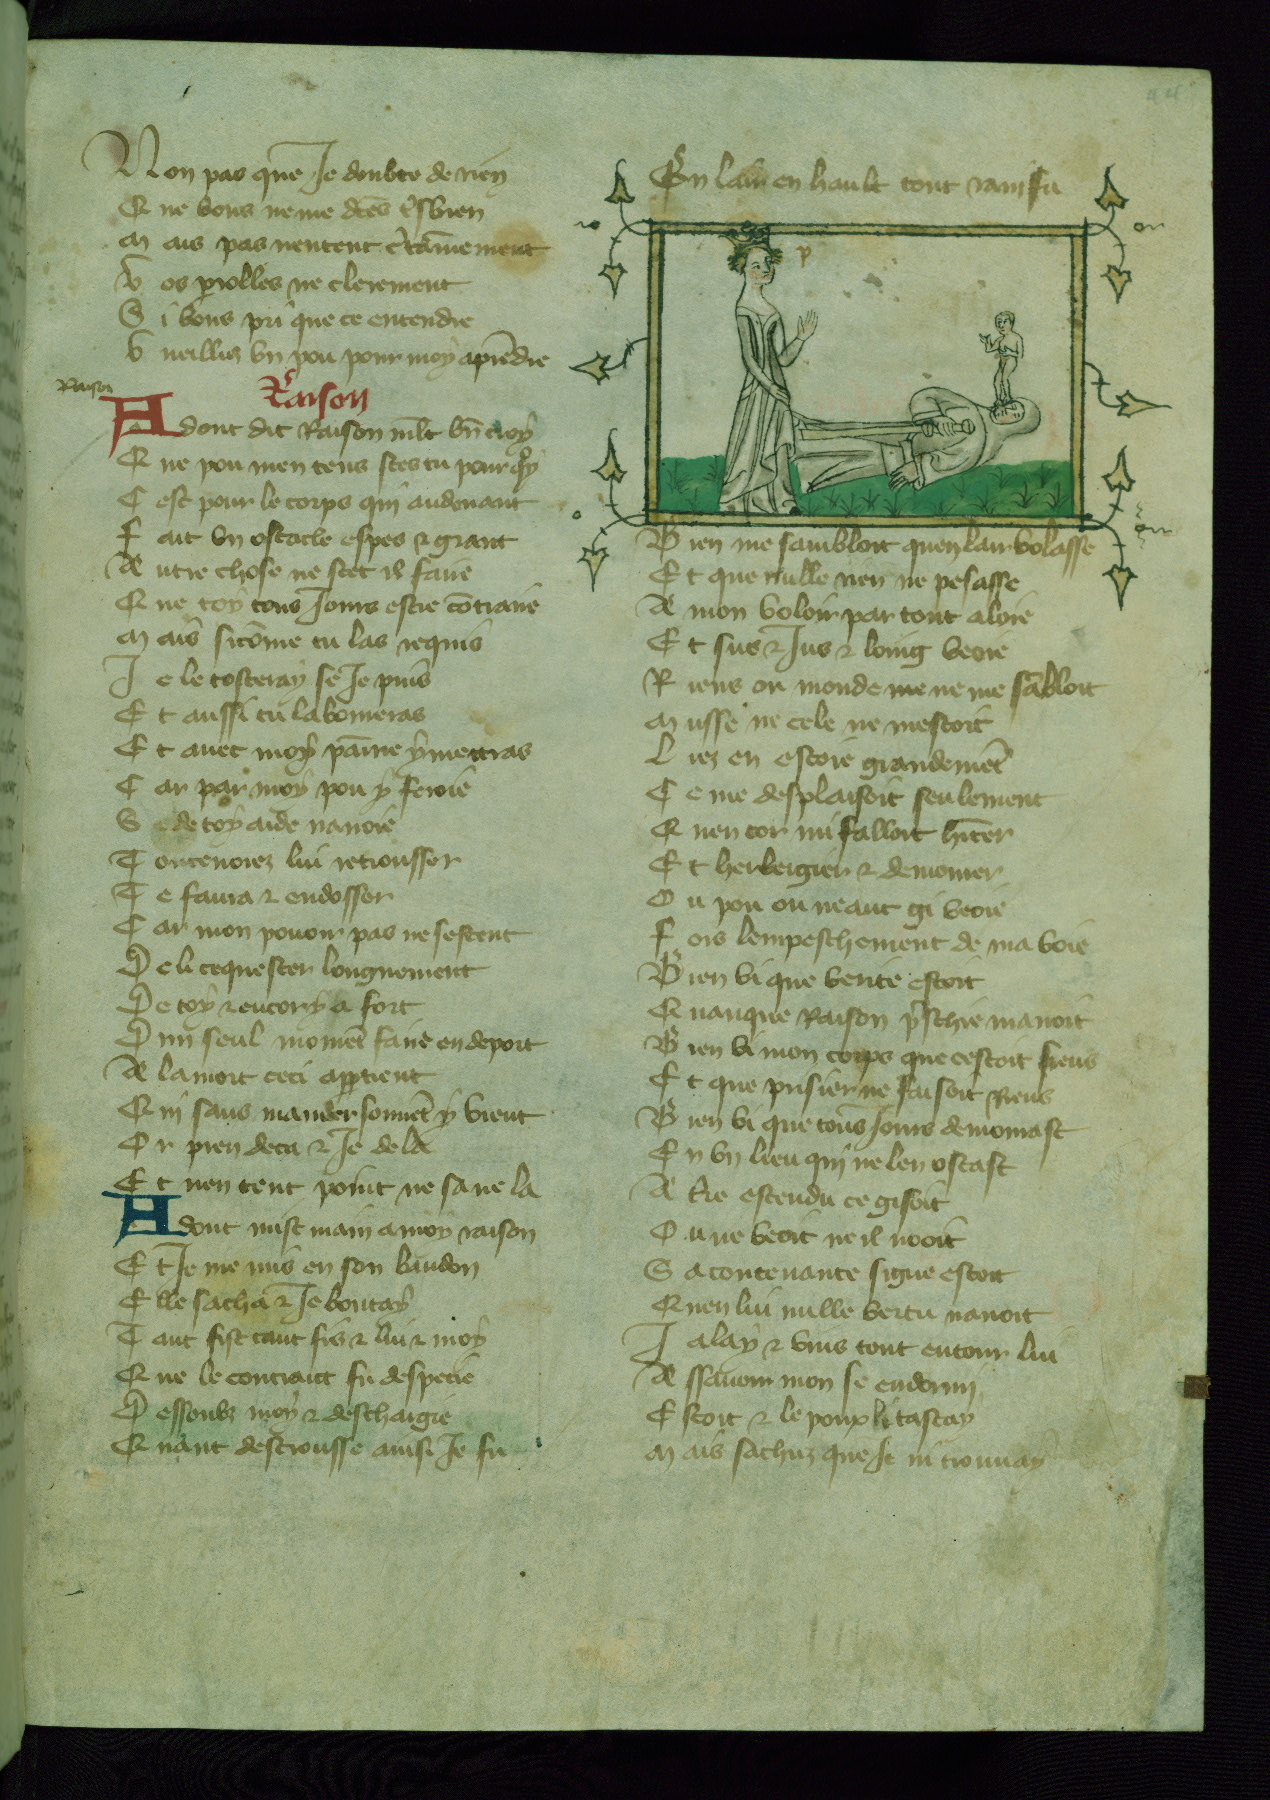 Non pas que Je doubte de rien
Que vous ne me dces tsbien
Mais pas nentent ctainement
Vos prolles ne clerement
Si vous pri que ce entendre
Vueilliez un pou pour moy aprendre
Raison
Raison
Adont dit Raison mlt bn croy
Que pou men tens sces tu pour qy
Cest pour le corps qui audevant
Fait un obstacle espes & grant
Autre chose ne scet il faire
Que toy tous Jours estre contraire
Mais sicome tu las requis
Je le tosteray se Je puis
Et aussi tu labourras
Et avec moy paine y mettras
Car par moy pou y feroie
Se de toy aide navoie
Torcenoiez lui retrousser
Te faura & endosser
Car mon pouoir pas ne sestent
De li cequester longuement
De toy & encor y a fort
Dun seul momet faire en deport
A la mort ceci aptient
Qui sans mander souvet y vient
Or pren deca & Je de la
Et nen tent point ne sa ne la
Adont mist main a moy raison
Et Je me mis en son bandon
Elle sacha & Je boutay
Tant fist tant fis & lui & moy
Que le contrait fu despecie
Dessoubz moy & deschargie
Quant destrousse ainsi Je fu
En lair en hault tout ravi fu
Bien me sambloit quen lair volasse
Et que nulle rien ne pesasse
A mon voloir par tout aloie
Et sus & Jus & loing veoie
Riens ou monde me ne me sabloit
Musse ne cele ne mestoit
Liez en estoie grandemet
Ce me desplaisoit seulement
Quen cor mi falloit hiter
Et herbergier & demourer
Ou pou ou neant gi veoie
Fors lempeschement de ma voie
Bien vi que verite estoit
Quanque Raison pschie mavoit
Bien vi mon corps que cestoit fiens
Et que prisier ne faisoit Riens
Bien vi que tous Jours demourast
En un lieu qui ne len ostast
A tre estendu ce gisoit
Ou ne veoit ne il nooit
Sa contenance signe estoit
Quen lui nulle vertu navoit
Jalay & vins tout entour lui
Assavoir mon se endormi
Estoit & le poux li tastay
Mais sachiez que Je ni trouvay